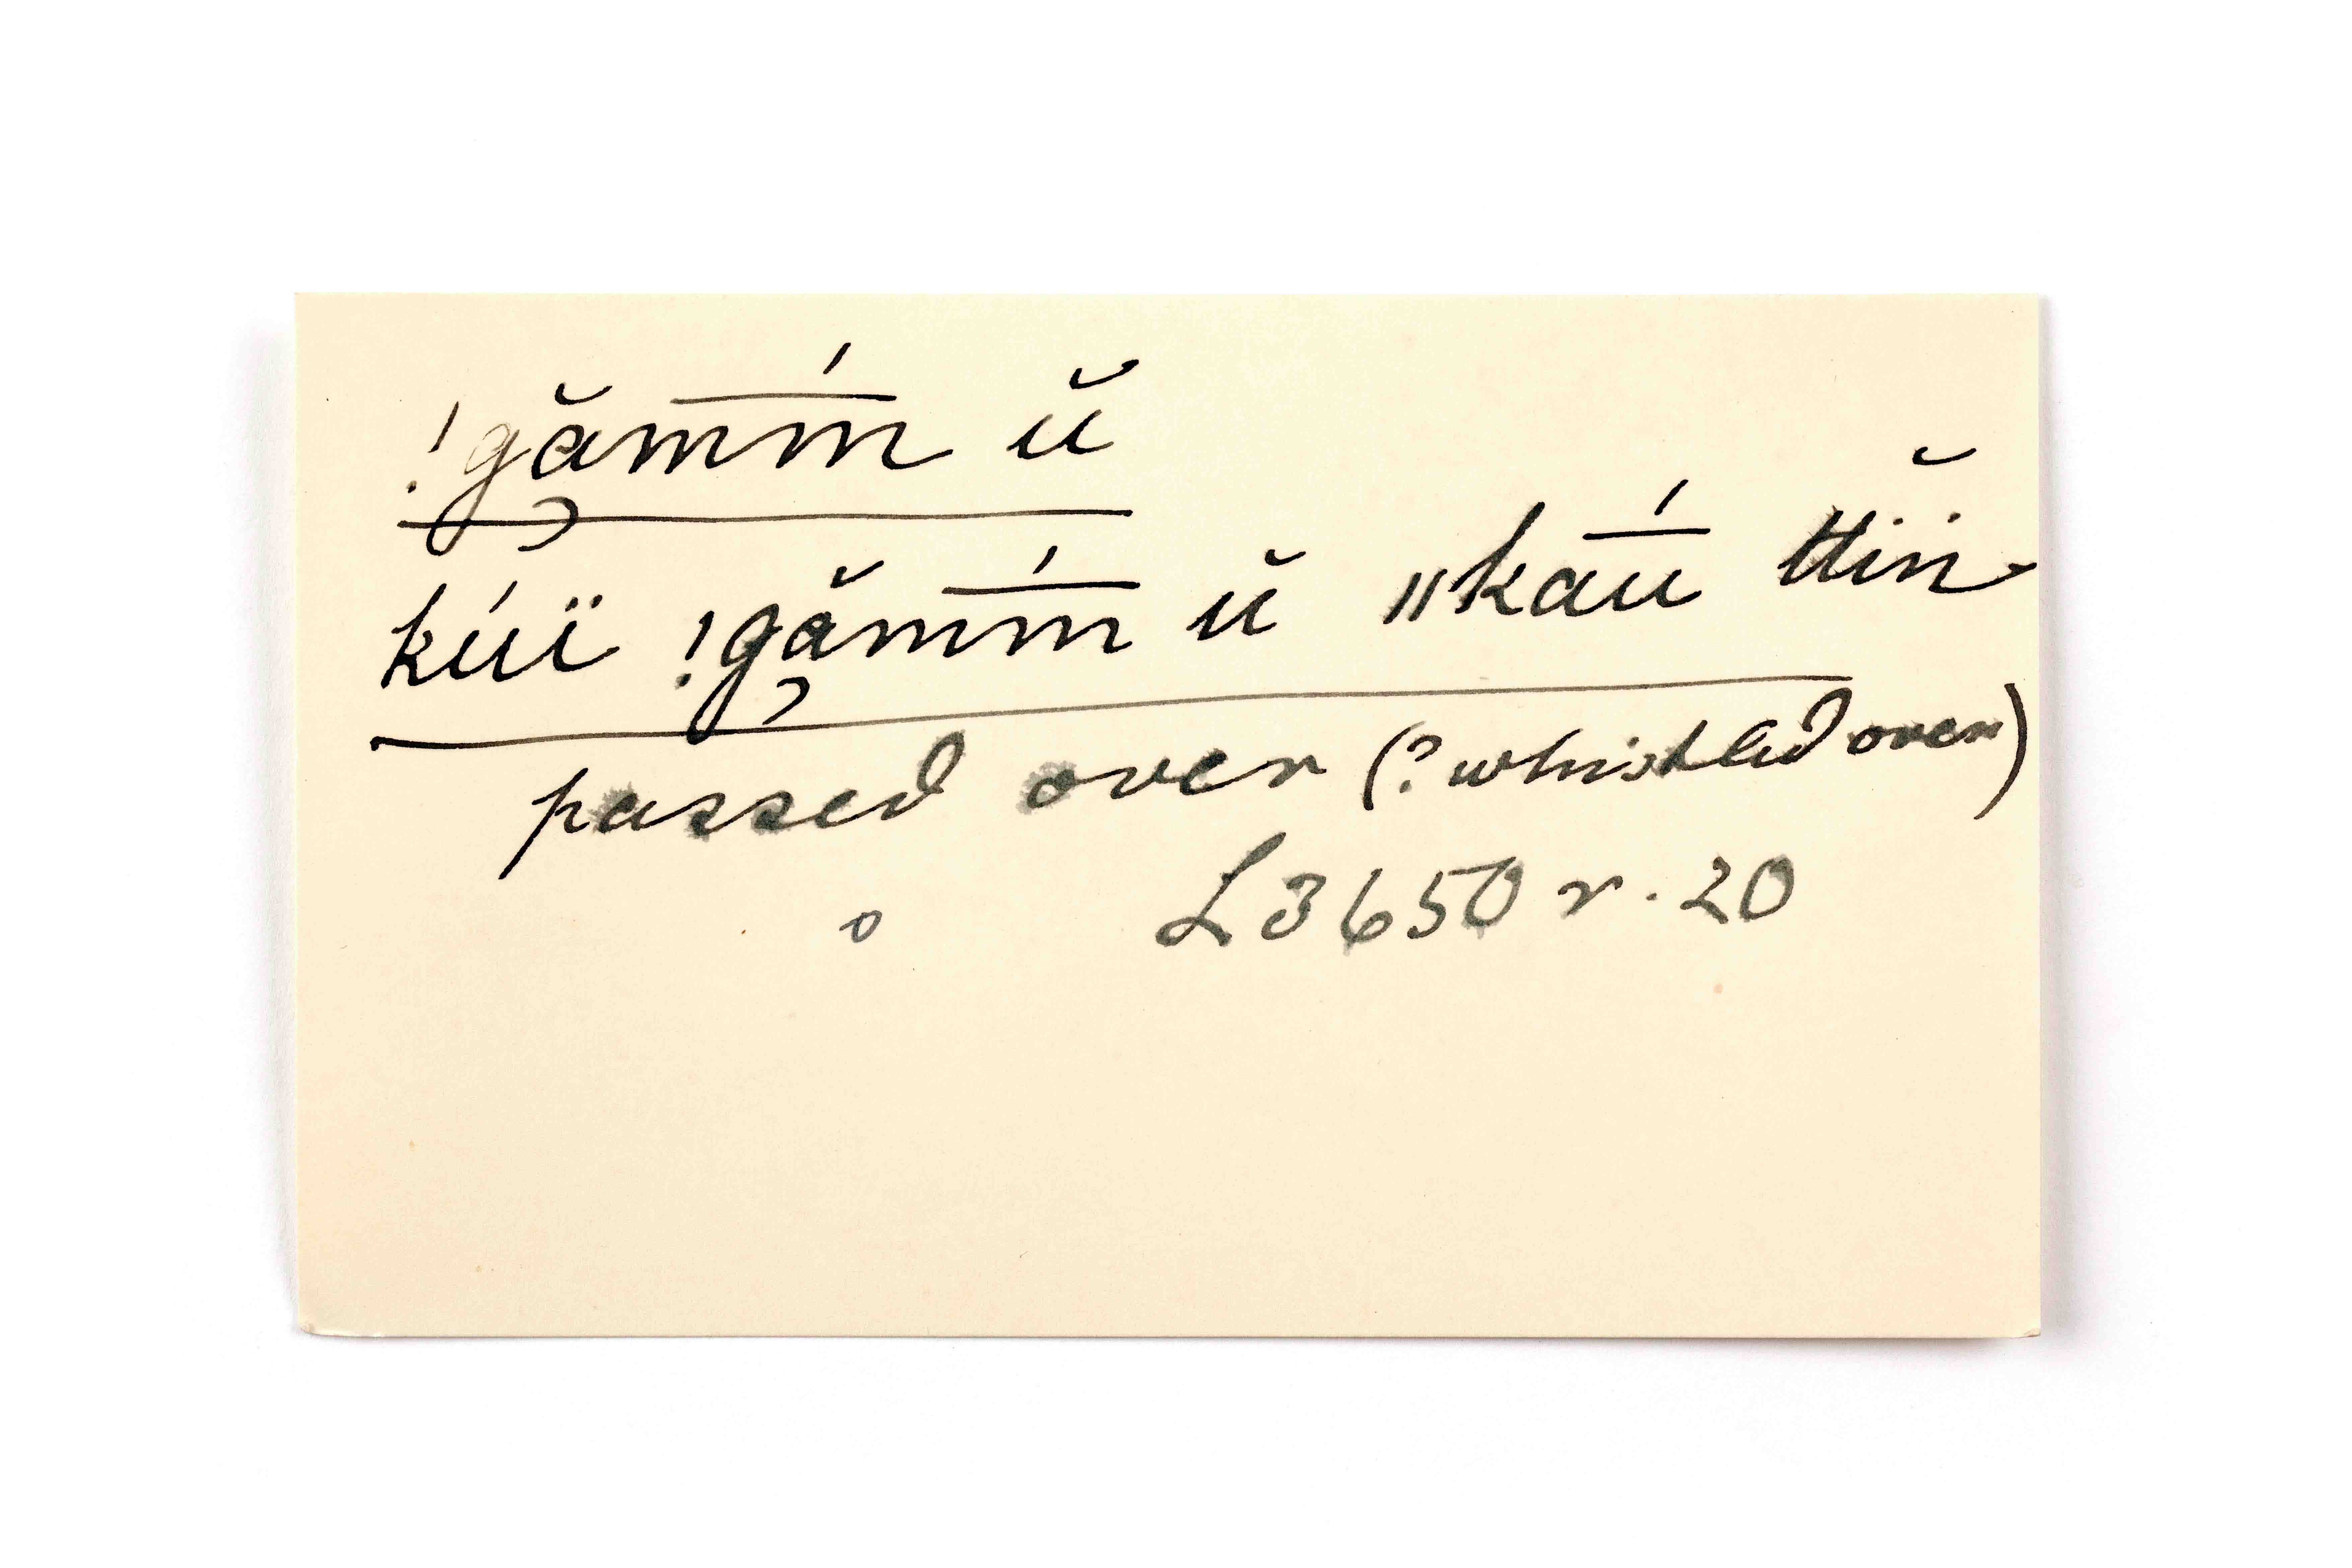 !gă̦m̅ḿ̅ ŭ
kúï !gă̦m̅ḿ̅ ŭ ǁkau̅́ ttĭn
passed over (? whistled over)
L3650 r. 20
o